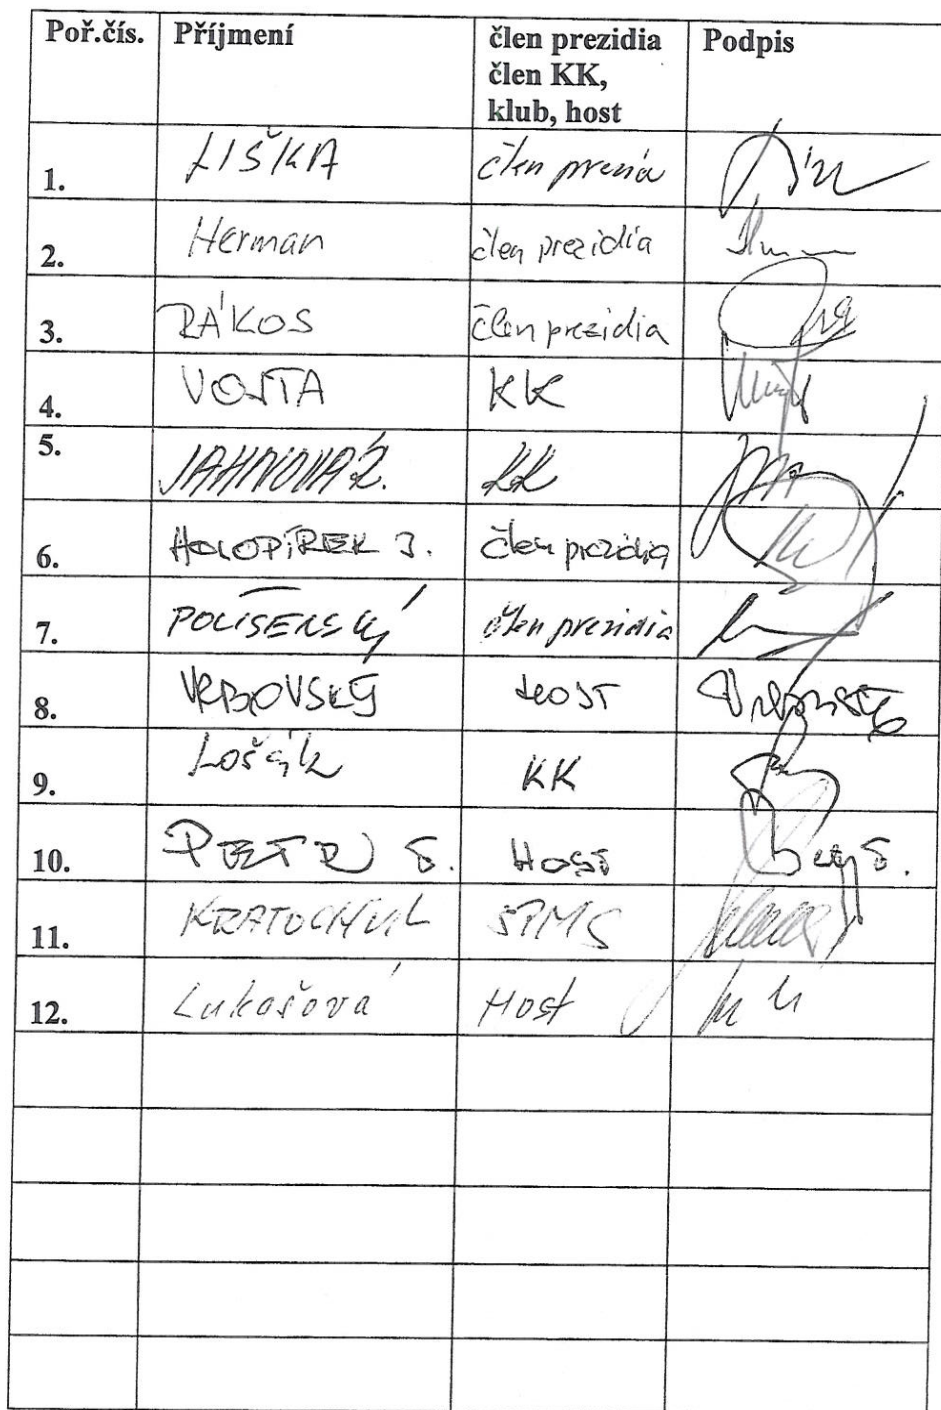 Poř.čís. Příjmení člen prezidia Podpis
člen KK,
klub, host
1. LIŠKA člen
2. Herman člen prezidia
3. RÁKOS člen prezidia
4. VOJTA KK
5. JAHNOVÁ KK
6. HOLOPÍREK J. člen prezidia
7. POLÍŠENSKÝ člen prezidia
8. VRBOVSKÝ HOST
9. Loščík KK
10. PETRŮ Š. HOST
11. KRATOCHVÍL
12. Lukošová Host